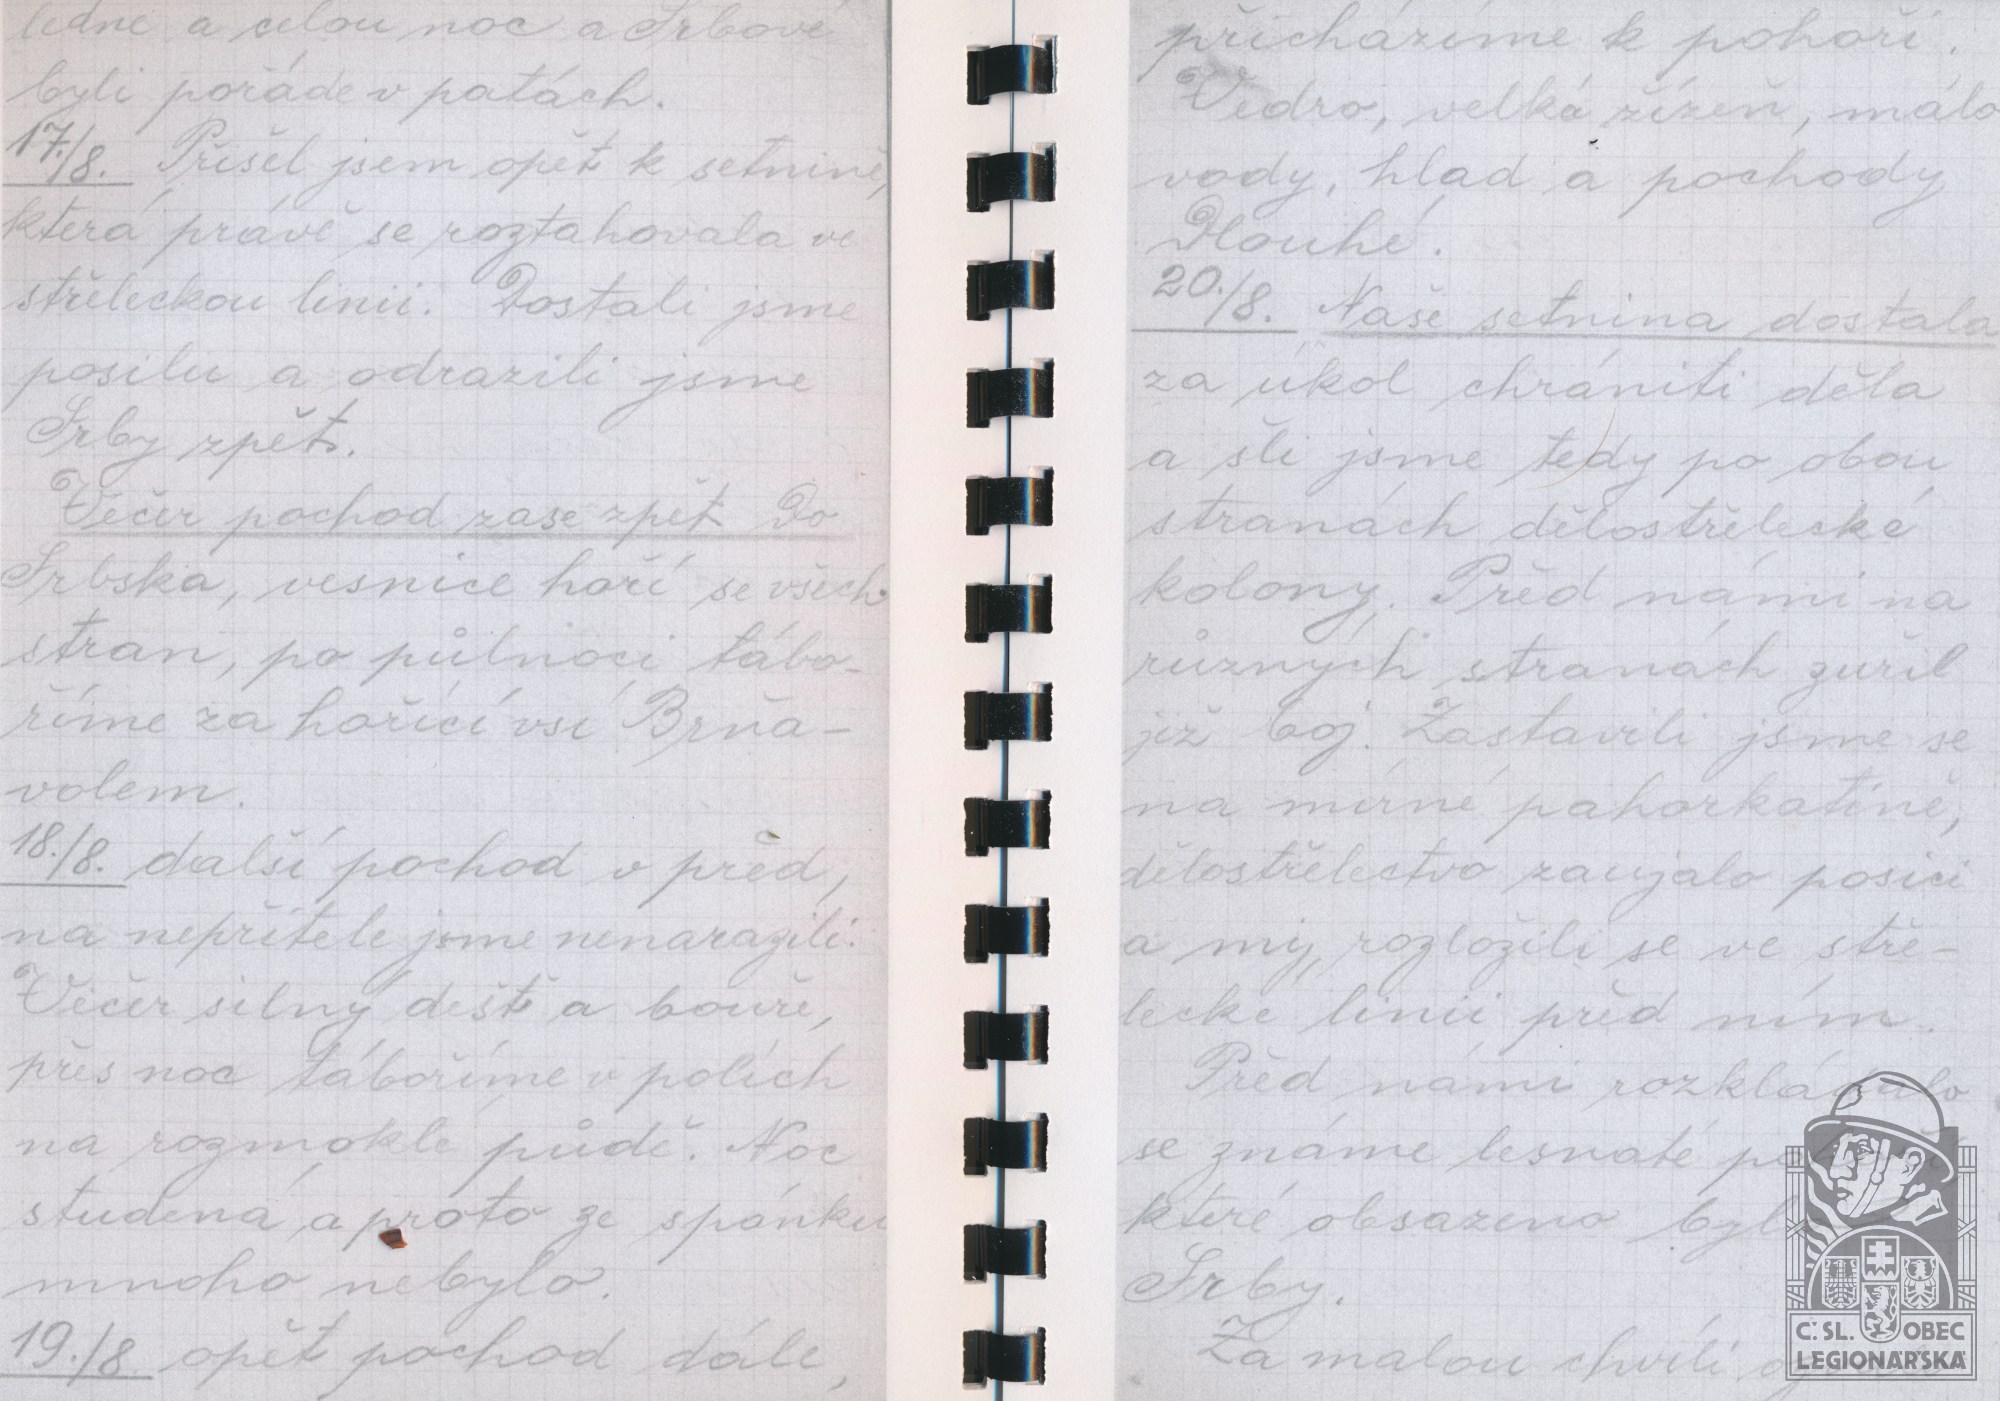 ledne a celou noc a Srbové
byli pořáde v patách.
17./8. Přišel jsem opět k setnině,
která právě se roztahovala ve
střeleckou linii. Dostali jsme
posilu a odrazili jsme
Srby zpět.
Večer pochod zase zpět do
Srbska, vesnice hoří se všech
stran, po půlnoci tábo-
říme za hořící vsí Brňa-
volem.
18./8. další pochod v před,
na nepřítele jsme nenarazili.
Večer silný dešt a bouře,
přes noc táboříme v polích
na rozmoklé půdě. Noc
studená a proto ze spánku
mnoho nebylo.
19./8. opět pochod dále,
přicházíme k pohoří.
Vedro, velká žízeň, málo
vody, hlad a pochody
Dlouhé.
20./8. Naše setnina dostala
za úkol chrániti děla
a šli jsme tedy po obou
stranách dělostřelecké
kolony. Před námi na
různých stranách zuřil
již boj. Zastavili jsme se
na mírné pahorkatině,
dělostřelectvo zaujalo posici
a my rozložili se ve stře-
lecké linii před ním.
Před námi rozkládalo
se známe lesnaté
které obsazeno
Srby.
Za malou chvíli
Č. SL. OBEC
LEGIONÁŘSKÁ